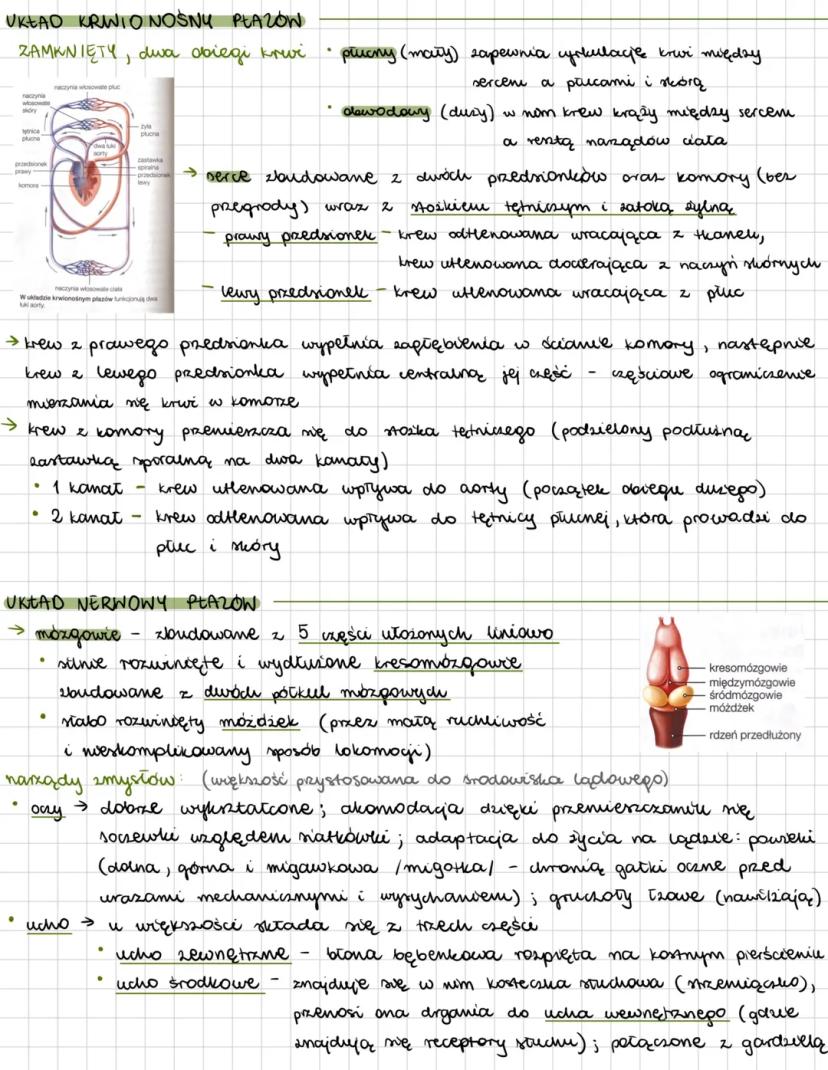 UKŁAD KRWIONOŚNY PŁAZÓW
ZAMKNIĘTY, dwa obiegi krwi
• płucny (mały) zapewnia cyrkulację krwi między
sercem a płucami i skórą
• obwodowy (duży) w nim krew krąży między sercem
a resztą narządów ciała
naczynia włosowate płuc
naczynia włosowate skóry
tętnica płucna
żyła płucna
dwa łuki aorty
przedsionek prawy
zastawka spiralna
przedsionek lewy
komora
naczynia włosowate ciała
W układzie krwionośnym płazów funkcjonują dwa
łuki aorty.
→ serce zbudowane z dwóch przedsionków oraz komory (bez
przegrody) wraz z stożkiem tętniczym i zatoką żylną
- prawy przedsionek - krew odtlenowana wracająca z tkanek,
krew utlenowana docierająca z naczyń skórnych
- lewy przedsionek - krew utlenowana wracająca z płuc
→ krew z prawego przedsionka wypełnia zagłębienia w ścianie komory, następnie
krew z lewego przedsionka wypełnia centralną jej część - częściowe ograniczenie
mieszania się krwi w komorze
→ krew z komory przemieszcza się do stożka tętniczego (podzielony podłużną
zastawką spiralną na dwa kanały)
• 1 kanał - krew utlenowana wpływa do aorty (początek obiegu dużego)
• 2 kanał - krew odtlenowana wpływa do tętnicy płucnej, która prowadzi do
płuc i skóry
UKŁAD NERWOWY PŁAZÓW
→ mózgowie - zbudowane z 5 części ułożonych liniowo
• silnie rozwinięte i wydłużone kresomózgowie
zbudowane z dwóch półkul mózgowych
• słabo rozwinięty móżdżek (przez małą ruchliwość
i nieskomplikowany sposób lokomocji)
kresomózgowie
międzymózgowie
śródmózgowie
móżdżek
rdzeń przedłużony
narządy zmysłów: (większość przystosowana do środowiska lądowego)
• oczy → dobrze wykształcone; akomodacja dzięki przemieszczaniu się
soczewki względem siatkówki; adaptacja do życia na lądzie: powieki
(dolna, górna i migawkowa /migotka/ - chronią gałki oczne przed
urazami mechanicznymi i wysychaniem); gruczoły łzowe (nawilżają)
• ucho → u większości składa się z trzech części
• ucho zewnętrzne - błona bębenkowa rozpięta na kostnym pierścieniu
• ucho środkowe - znajduje się w nim kosteczka słuchowa (strzemiączko),
przenosi ona drgania do ucha wewnętrznego (gdzie
znajdują się receptory słuchu); połączone z gardzielą